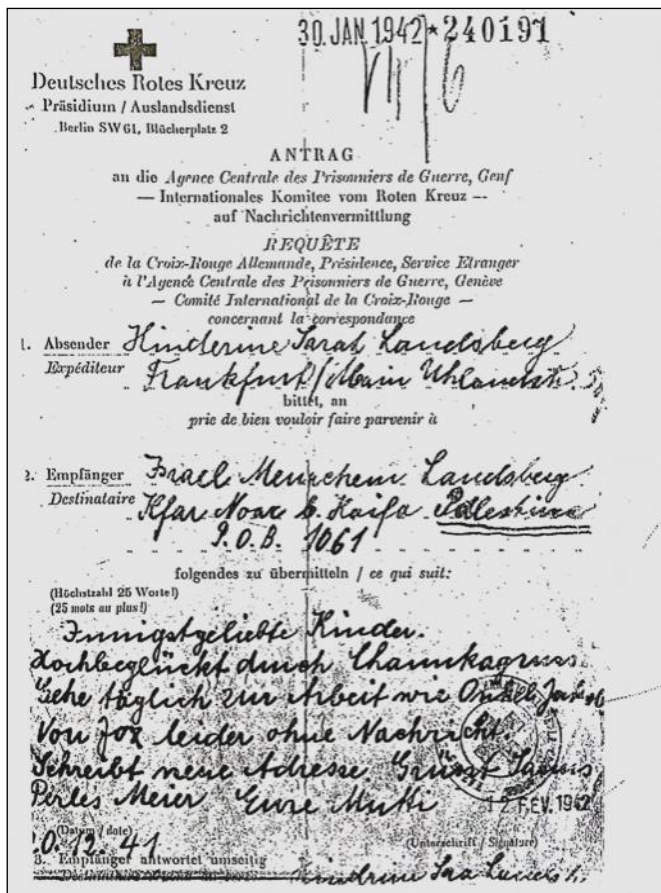 30. JAN. 1942 * 240191
Deutsches Rotes Kreuz
Präsidium / Auslandsdienst
Berlin SW 61, Blücherplatz 2
ANTRAG
an die Agence Centrale des Prisonniers de Guerre, Genf
— Internationales Komitee vom Roten Kreuz —
auf Nachrichtenvermittlung
REQUÊTE
de la Croix-Rouge Allemande, Présidence, Service Etranger
à l'Agence Centrale des Prisonniers de Guerre, Genève
— Comité International de la Croix-Rouge —
concernant la correspondance
1. Absender Hinderine Sarah Landsberg
Expéditeur Frankfurt/Main Uhlandstr.
bittet, an
prie de bien vouloir faire parvenir à
2. Empfänger Israel Menachem Landsberg
Destinataire Kfar Noar b. Haifa Palestine
P.O.B. 1061
folgendes zu übermitteln / ce qui suit:
(Höchstzahl 25 Worte!)
(25 mots au plus!)
Innigstgeliebte Kinder.
Hochbeglückt durch Chanukagruss
Gehe täglich zur Arbeit wie Onkel
Von leider ohne Nachricht.
Schreibt neue Adresse. Grüsst
Perles Meier Eure Mutti
12 FEV. 1942
(Datum / date) (Unterschrift / Signature)
.0.12.41
3. Empfänger antwortet umseitig
Landsb.